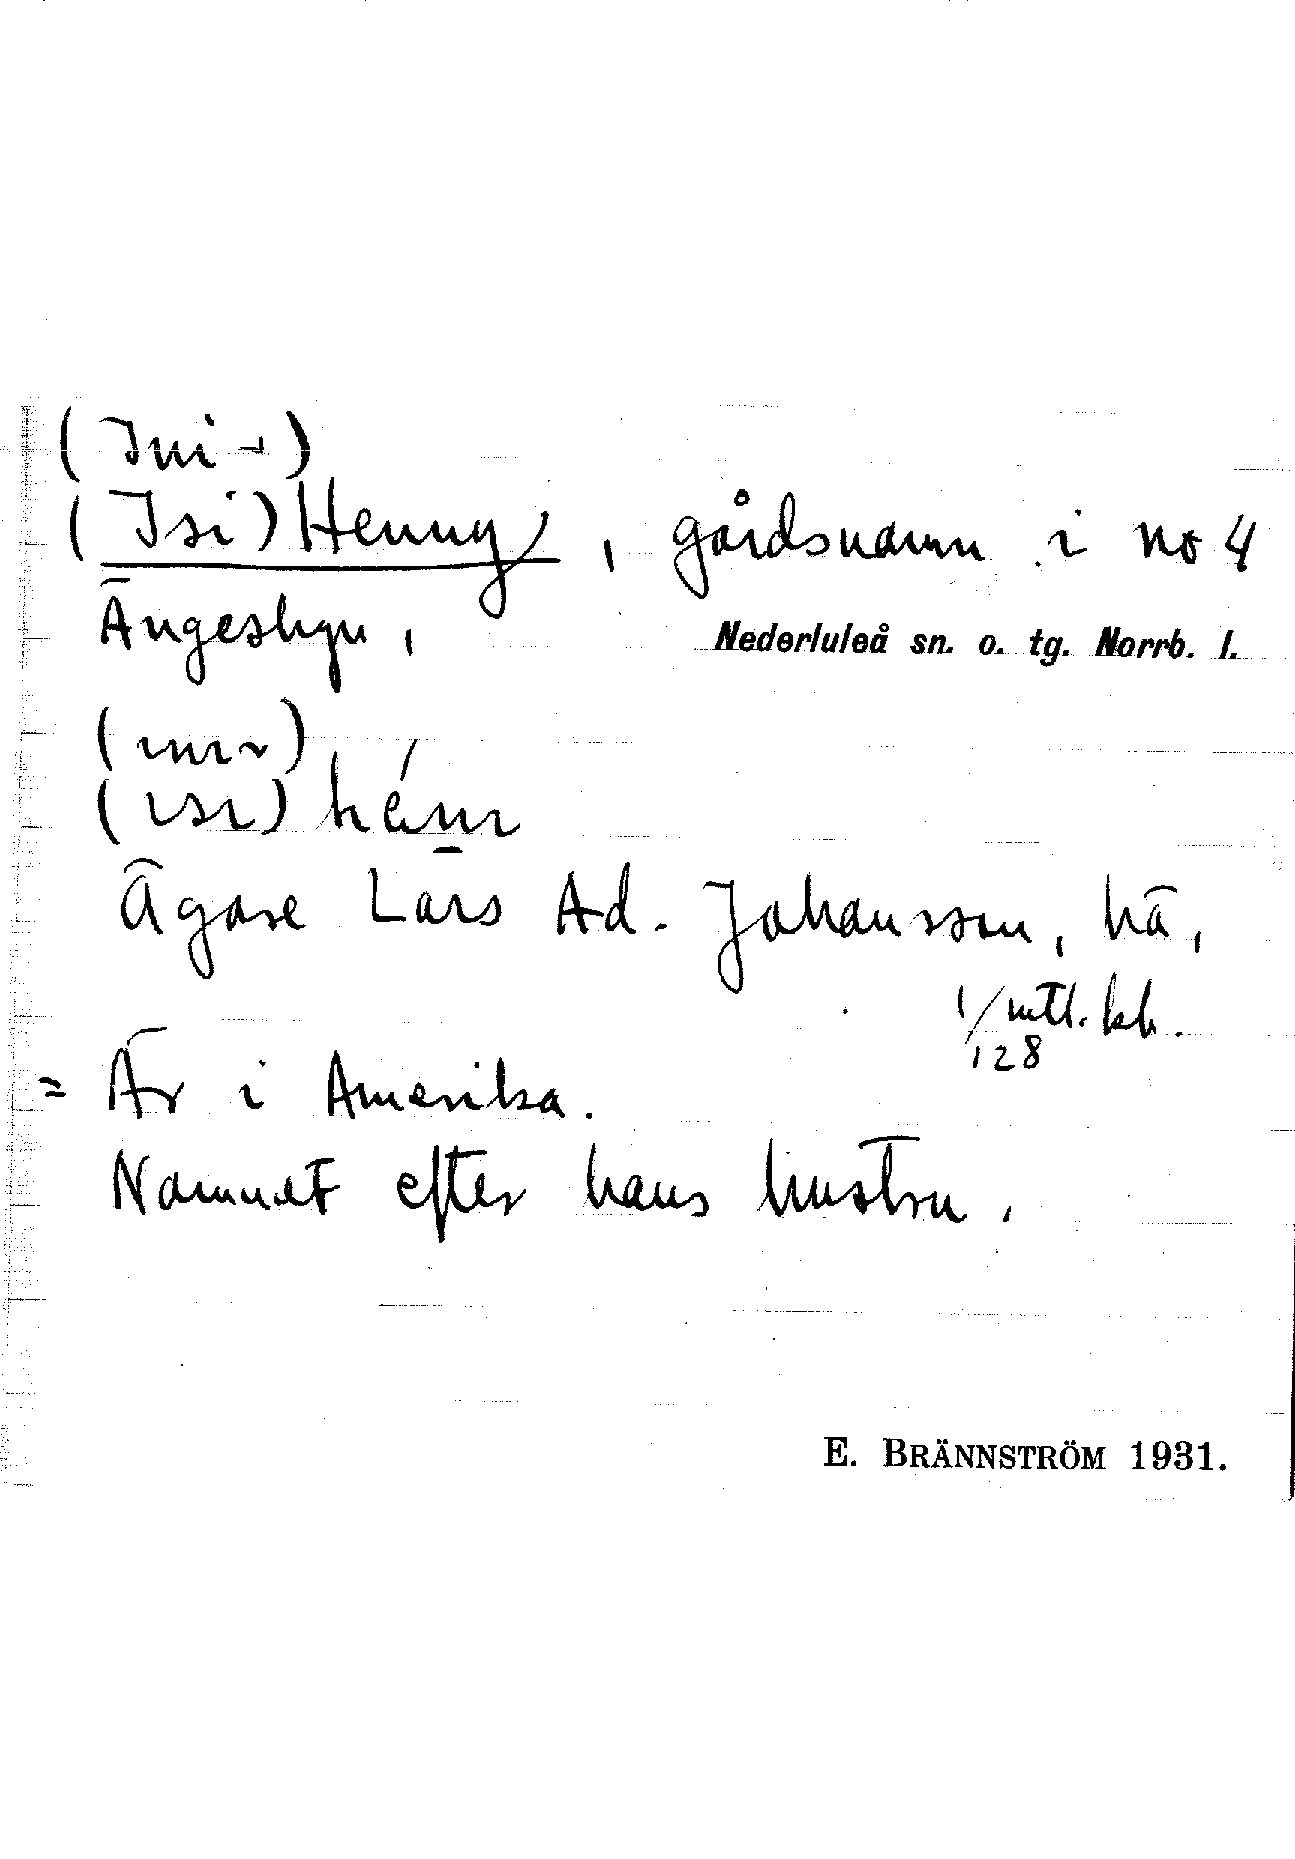 (Ini-)
(Isi)Henny, gårdsnamn i no 4
Ängesbyn, Nederluleå sn. o. tg. Norrb. l.
(ɪnɪ-)
(ɪsɪ) hénɪ
Ägare Lars Ad. Johansson, hä,
1/128 mtl. kb.
= Är i Amerika.
Namnet efter hans hustru.
E. BRÄNNSTRÖM 1931.